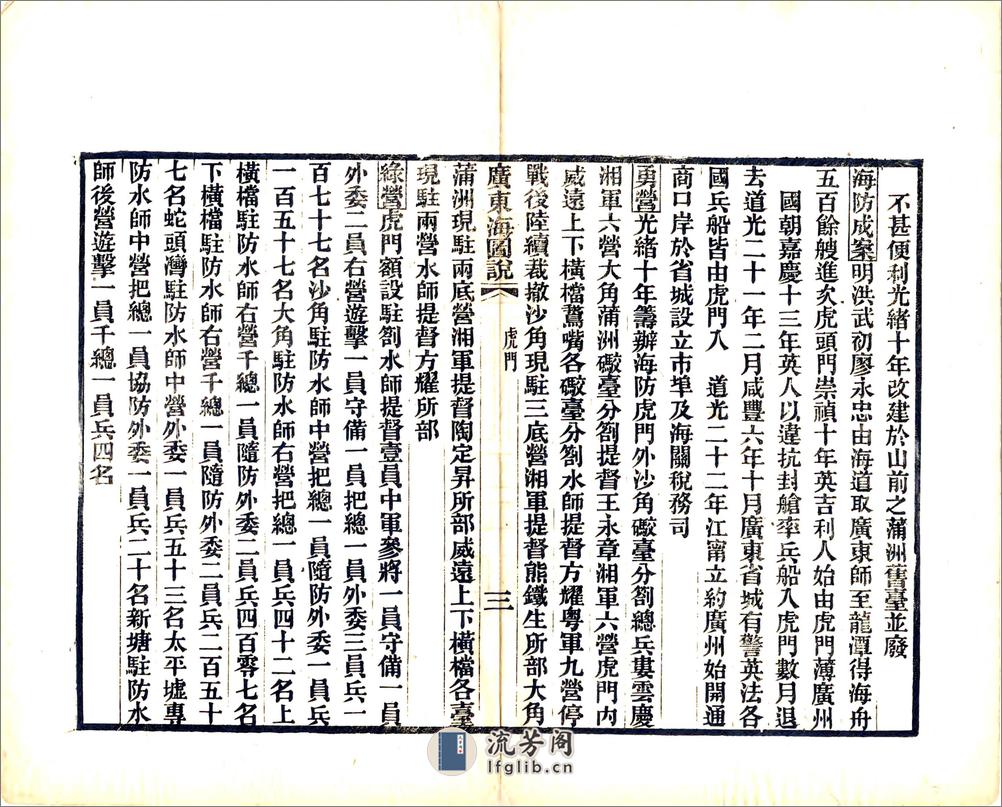 不甚便利光緒十年改建於山前之蒲洲舊臺並廢
海防成案明洪武初廖永忠由海道取廣東師至龍潭得海舟
五百餘艘進次虎頭門崇禎十年英吉利人始由虎門薄廣州
國朝嘉慶十三年英人以違抗封艙率兵船入虎門數月退
去道光二十一年二月咸豐六年十月廣東省城有警英法各
國兵船皆由虎門入　道光二十二年江甯立約廣州始開通
商口岸於省城設立市埠及海關稅務司
勇營光緒十年籌辦海防虎門外沙角礮臺分劄總兵婁雲慶
湘軍六營大角蒲洲礮臺分劄提督王永章湘軍六營虎門內
威遠上下橫檔鵞嘴各礮臺分劄水師提督方耀粵軍九營停
戰後陸續裁撤沙角現駐三底營湘軍提督熊鐵生所部大角
廣東海圖說　虎門　三
蒲洲現駐兩底營湘軍提督陶定昇所部威遠上下橫檔各臺
現駐兩營水師提督方耀所部
綠營虎門額設駐劄水師提督壹員中軍參將一員守備一員
外委二員右營遊擊一員守備一員把總一員外委三員兵一
百七十七名沙角駐防水師中營把總一員隨防外委一員兵
一百五十七名大角駐防水師右營把總一員兵四十二名上
橫檔駐防水師右營千總一員隨防外委二員兵四百零七名
下橫檔駐防水師右營千總一員隨防外委二員兵二百五十
七名蛇頭灣駐防水師中營外委一員兵五十三名太平墟專
防水師中營把總一員協防外委一員兵二十名新塘駐防水
師後營遊擊一員千總一員兵四名
流芳阁
lfglib.cn